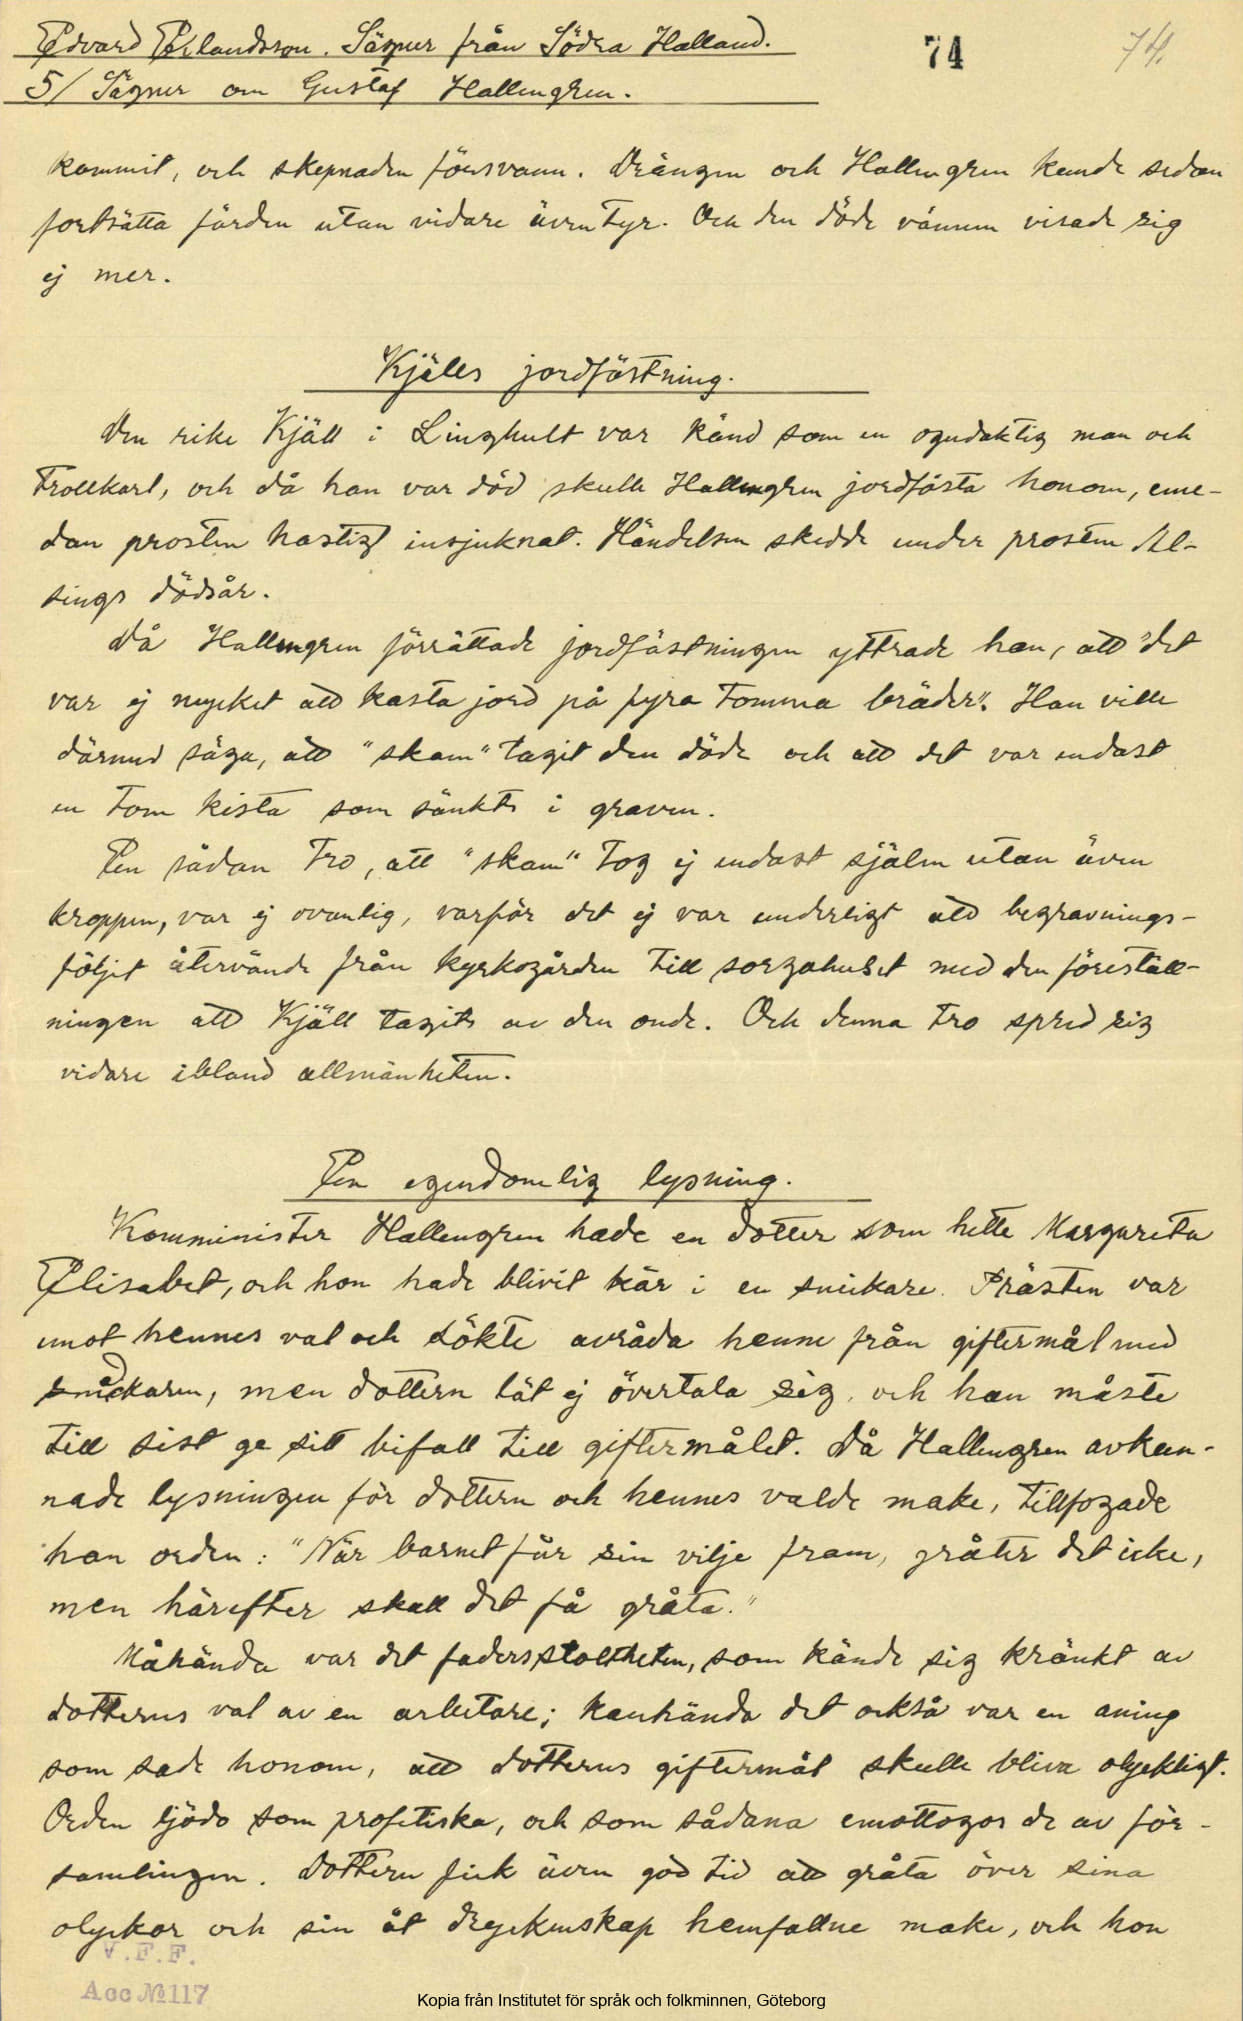 Edvard Erlandsson. Sägner från Södra Halland.
74
74.
5/ Sägner om Gustaf Hallengren.
kommit, och skepnaden försvann. Drängen och Hallengren kunde sedan
fortsätta färden utan vidare äventyr. Och den döde vännen visade sig
ej mer.
Kjälls jordfästning.
Den rike Kjäll i Linghult var känd som en ogudaktig man och
trollkarl, och då han var död skulle Hallengren jordfästa honom, eme-
dan prosten hastigt insjuknat. Händelsen skedde under prosten Al-
sings dödsår.
Då Hallengren förrättade jordfästningen yttrade han, att "det
var ej mycket att kasta jord på fyra tomma bräder". Han ville
därmed säga, att "skam" tagit den döde och att det var endast
en tom kista som sänkts i graven.
En sådan tro, att "skam" tog ej endast själen utan även
kroppen, var ej ovanlig, varför det ej var underligt att begravnings-
följet återvände från kyrkogården till sorgahuset med den föreställ-
ningen att Kjäll tagits av den onde. Och denna tro spred sig
vidare ibland allmänheten.
En egendomlig lysning.
Komminister Hallengren hade en dotter som hette Margareta
Elisabet, och hon hade blivit kär i en snickare. Prästen var
emot hennes val och sökte avråda henne från giftermål med
snickaren, men dottern lät ej övertala sig, och han måste
till sist ge sitt bifall till giftermålet. Då Hallengren avkun-
nade lysningen för dottern och hennes valde make, tillfogade
han orden: "När barnet får sin vilje fram, gråter det icke,
men härefter skall det få gråta."
Måhända var det fadersstoltheten, som kände sig kränkt av
dotterns val av en arbetare; kanhända det också var en aning
som sade honom, att dotterns giftermål skulle bliva olyckligt.
Orden ljödo som profetiska, och som sådana emottogos de av för-
samlingen. Dottern fick även god tid att gråta över sina
olyckor och sin åt dryckenskap hemfallne make, och hon
V.F.F.
Acc № 117
Kopia från Institutet för språk och folkminnen, Göteborg